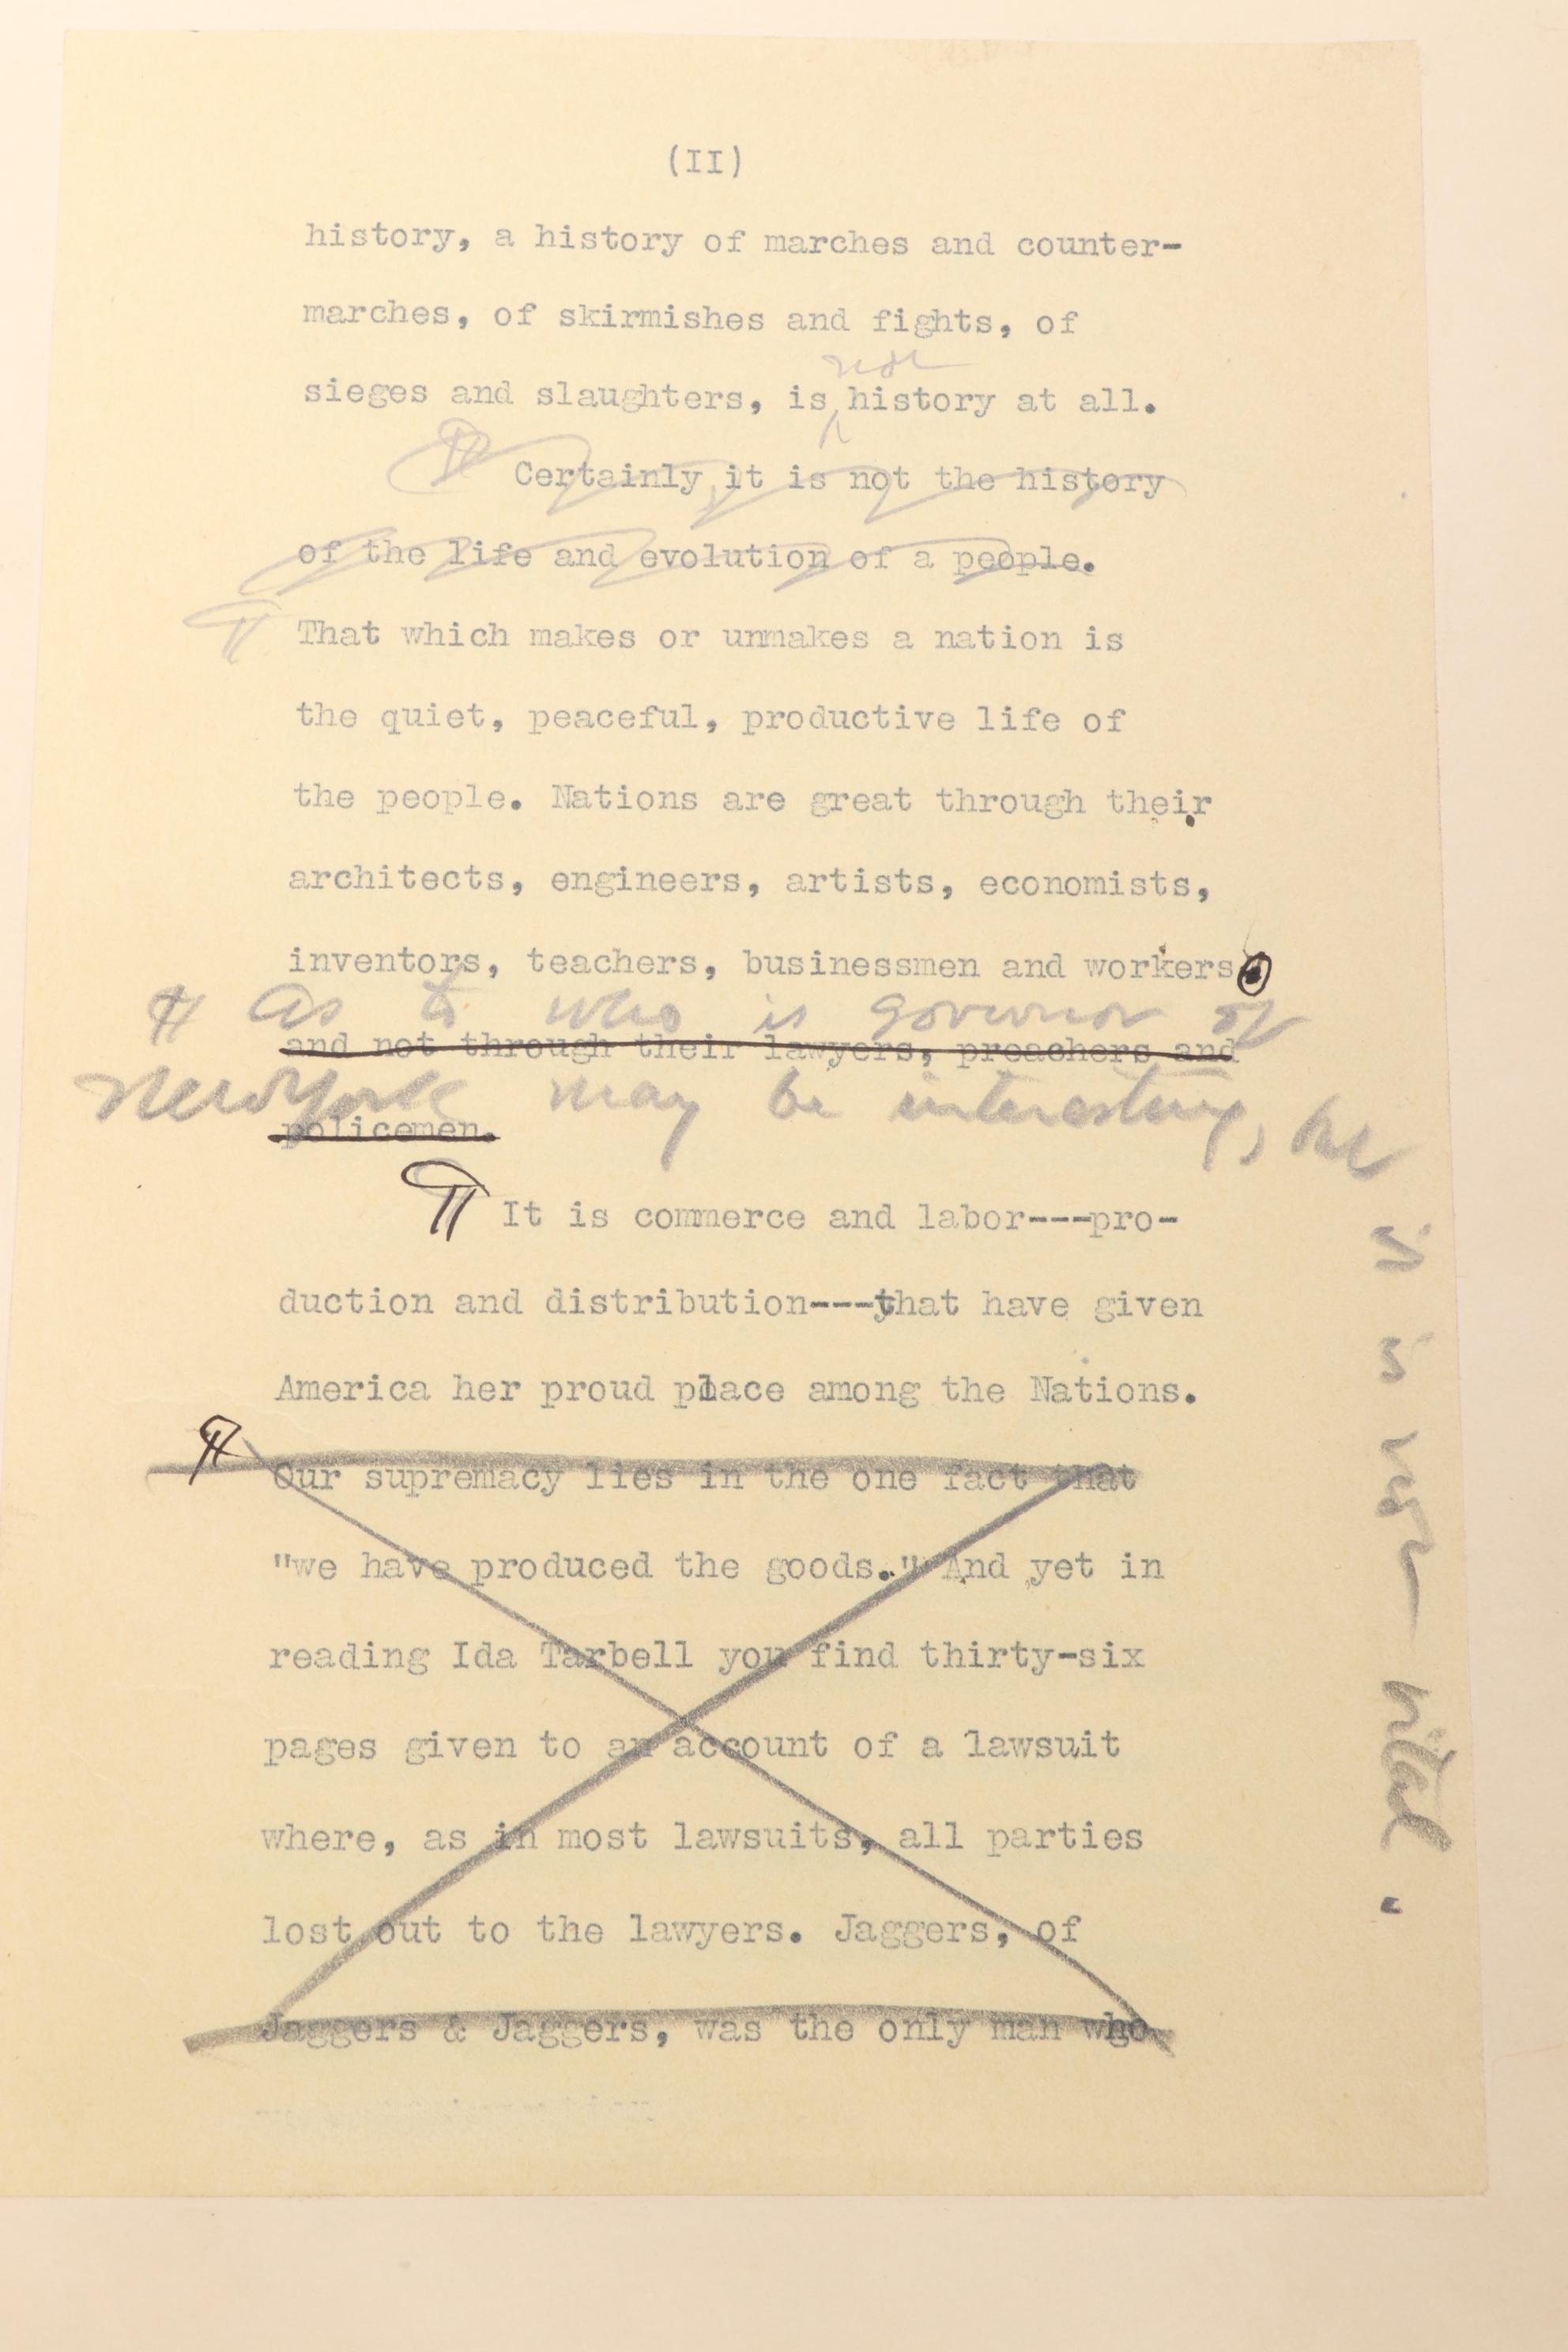 (II)
history, a history of marches and counter-
marches, of skirmishes and fights, of
not
sieges and slaughters, is history at all.
¶ Certainly it is not the history
of the life and evolution of a people.
¶ That which makes or unmakes a nation is
the quiet, peaceful, productive life of
the people. Nations are great through their
architects, engineers, artists, economists,
inventors, teachers, businessmen and workers.
¶ As to who is governor of
and not through their lawyers, preachers and
New York may be interesting, but
policemen.
¶ It is commerce and labor---pro-
duction and distribution---that have given
America her proud place among the Nations.
¶ Our supremacy lies in the one fact that
"we have produced the goods." And yet in
reading Ida Tarbell you find thirty-six
pages given to an account of a lawsuit
where, as in most lawsuits, all parties
lost out to the lawyers. Jaggers, of
Jaggers & Jaggers, was the only man who
is vital.